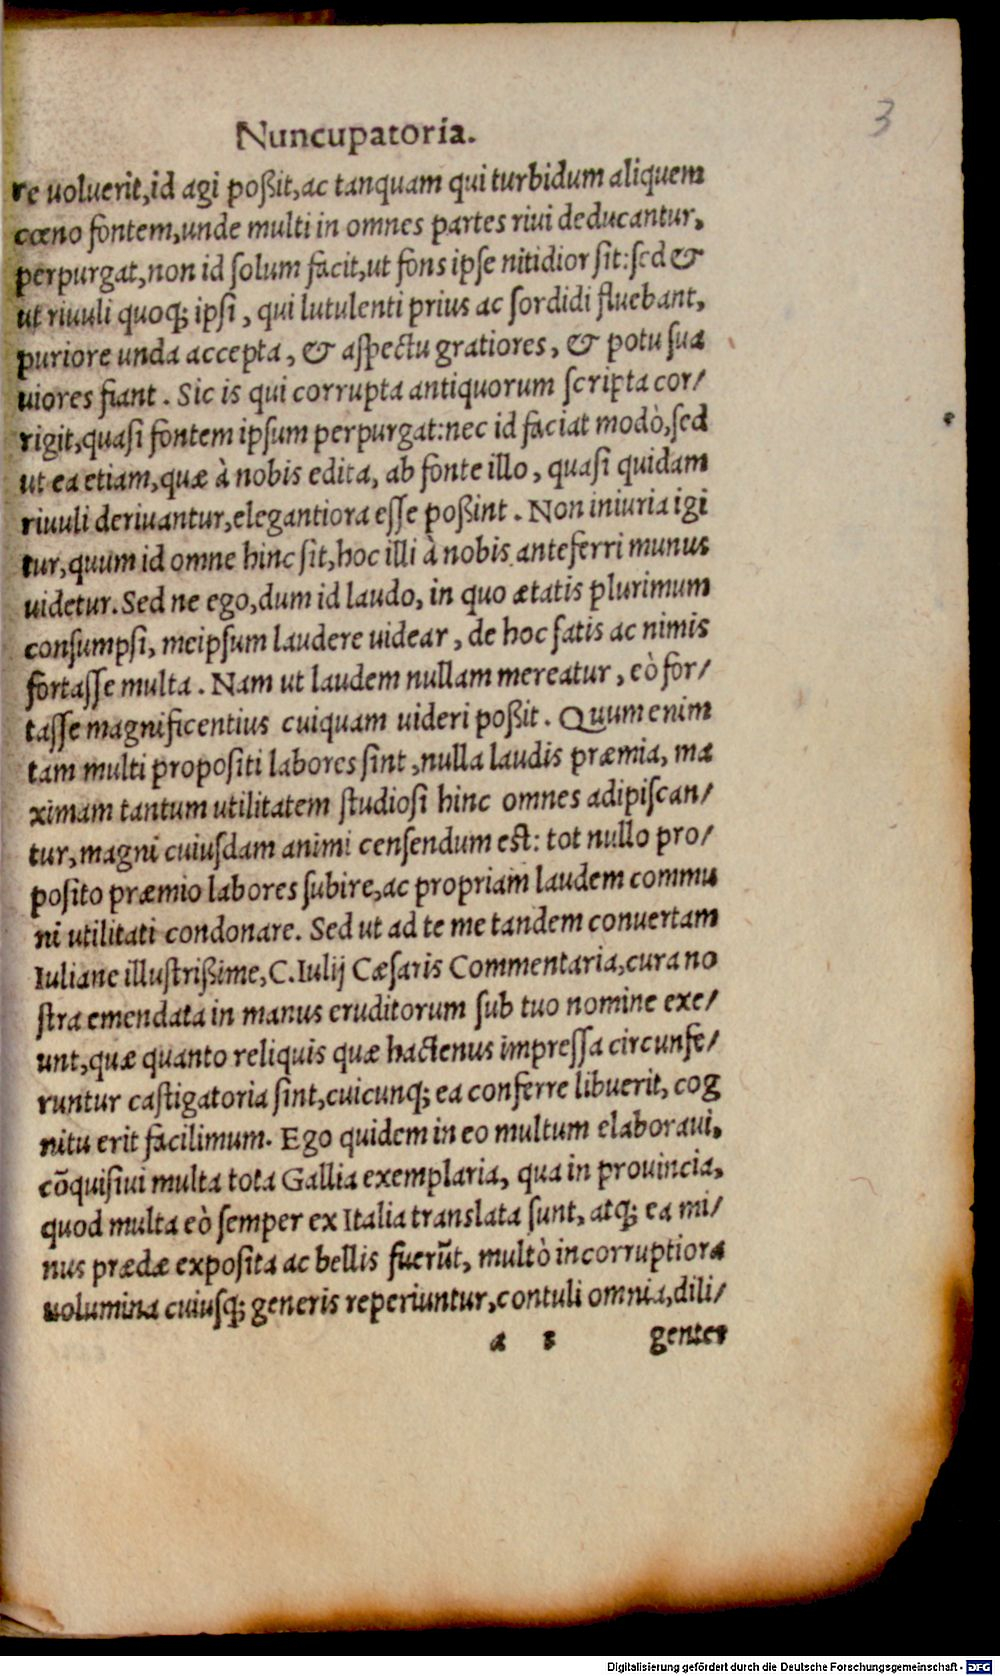 3
Nuncupatoria.
re uoluerit,id agi poßit,ac tanquam qui turbidum aliquem
cœno fontem,unde multi in omnes partes riui deducantur,
perpurgat,non id ſolum facit,ut fons ipſe nitidior ſit:ſed &
ut riuuli quoqꝫ ipſi, qui lutulenti prius ac ſordidi fluebant,
puriore unda accepta, & aſpectu gratiores, & potu ſua
uiores fiant. Sic is qui corrupta antiquorum ſcripta cor/
rigit,quaſi fontem ipſum perpurgat:nec id faciat modò,ſed
ut ea etiam,quæ à nobis edita, ab fonte illo, quaſi quidam
riuuli deriuantur,elegantiora eſſe poßint. Non iniuria igi
tur,quum id omne hinc ſit,hoc illi à nobis anteferri munus
uidetur.Sed ne ego,dum id laudo, in quo ætatis plurimum
conſumpſi, meipſum laudere uidear, de hoc ſatis ac nimis
fortaſſe multa. Nam ut laudem nullam mereatur, eò for/
taſſe magnificentius cuiquam uideri poßit. Quum enim
tam multi propoſiti labores ſint,nulla laudis præmia, ma
ximam tantum utilitatem ſtudioſi hinc omnes adipiſcan/
tur,magni cuiuſdam animi cenſendum eſt: tot nullo pro/
poſito præmio labores ſubire,ac propriam laudem commu
ni utilitati condonare. Sed ut ad te me tandem conuertam
Iuliane illuſtrißime,C.Iulij Cæſaris Commentaria,cura no
ſtra emendata in manus eruditorum ſub tuo nomine exe/
unt,quæ quanto reliquis quæ hactenus impreſſa circunfe/
runtur caſtigatoria ſint,cuicunqꝫ ea conferre libuerit, cog
nitu erit facilimum. Ego quidem in eo multum elaboraui,
cõquiſiui multa tota Gallia exemplaria, qua in prouincia,
quod multa eò ſemper ex Italia translata ſunt, atqꝫ ea mi/
nus prædæ expoſita ac bellis fuerũt, multò incorruptiora
uolumina cuiuſqꝫ generis reperiuntur,contuli omnia,dili/
a 3 genter
Digitalisierung gefördert durch die Deutsche Forschungsgemeinschaft - DFG